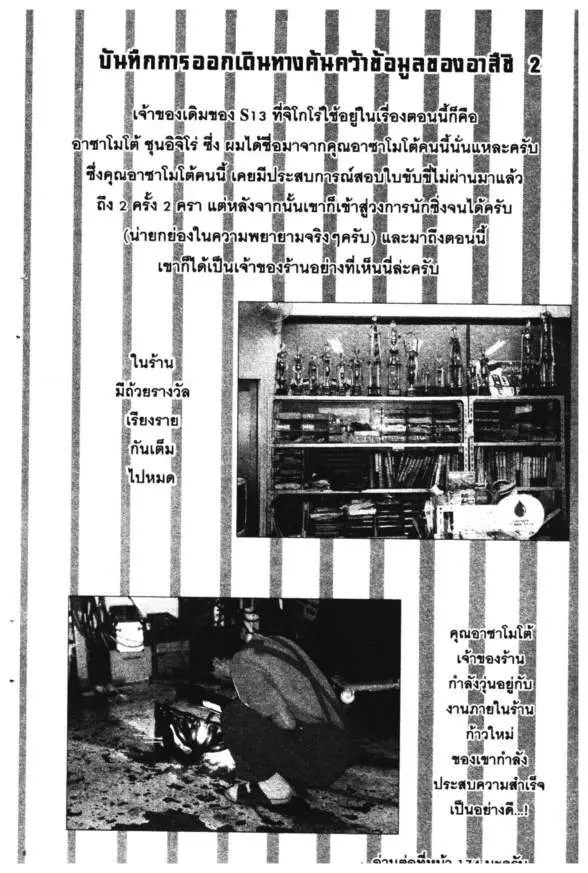 บันทึกการออกเดินทางค้นคว้าข้อมูลของอาสึชิ 2
เจ้าของเดิมของ S13 ที่จิโกโร่ใช้อยู่ในเรื่องตอนนี้ก็คือ
อาซาโมโต้ ชุนอิจิโร่ ซึ่ง ผมได้ชื่อมาจากคุณอาซาโมโต้คนนี้นั่นแหละครับ
ซึ่งคุณอาซาโมโต้คนนี้ เคยมีประสบการณ์สอบใบขับขี่ไม่ผ่านมาแล้ว
ถึง 2 ครั้ง 2 ครา แต่หลังจากนั้นเขาก็เข้าสู่วงการนักซิ่งจนได้ครับ
(น่ายกย่องในความพยายามจริงๆครับ) และมาถึงตอนนี้
เขาก็ได้เป็นเจ้าของร้านอย่างที่เห็นนี่ล่ะครับ
ในร้าน
มีถ้วยรางวัล
เรียงราย
กันเต็ม
ไปหมด
คุณอาซาโมโต้
เจ้าของร้าน
กำลังวุ่นอยู่กับ
งานภายในร้าน
ก้าวใหม่
ของเขากำลัง
ประสบความสำเร็จ
เป็นอย่างดี...!
อ่านต่อที่หน้า 174 นะครับ